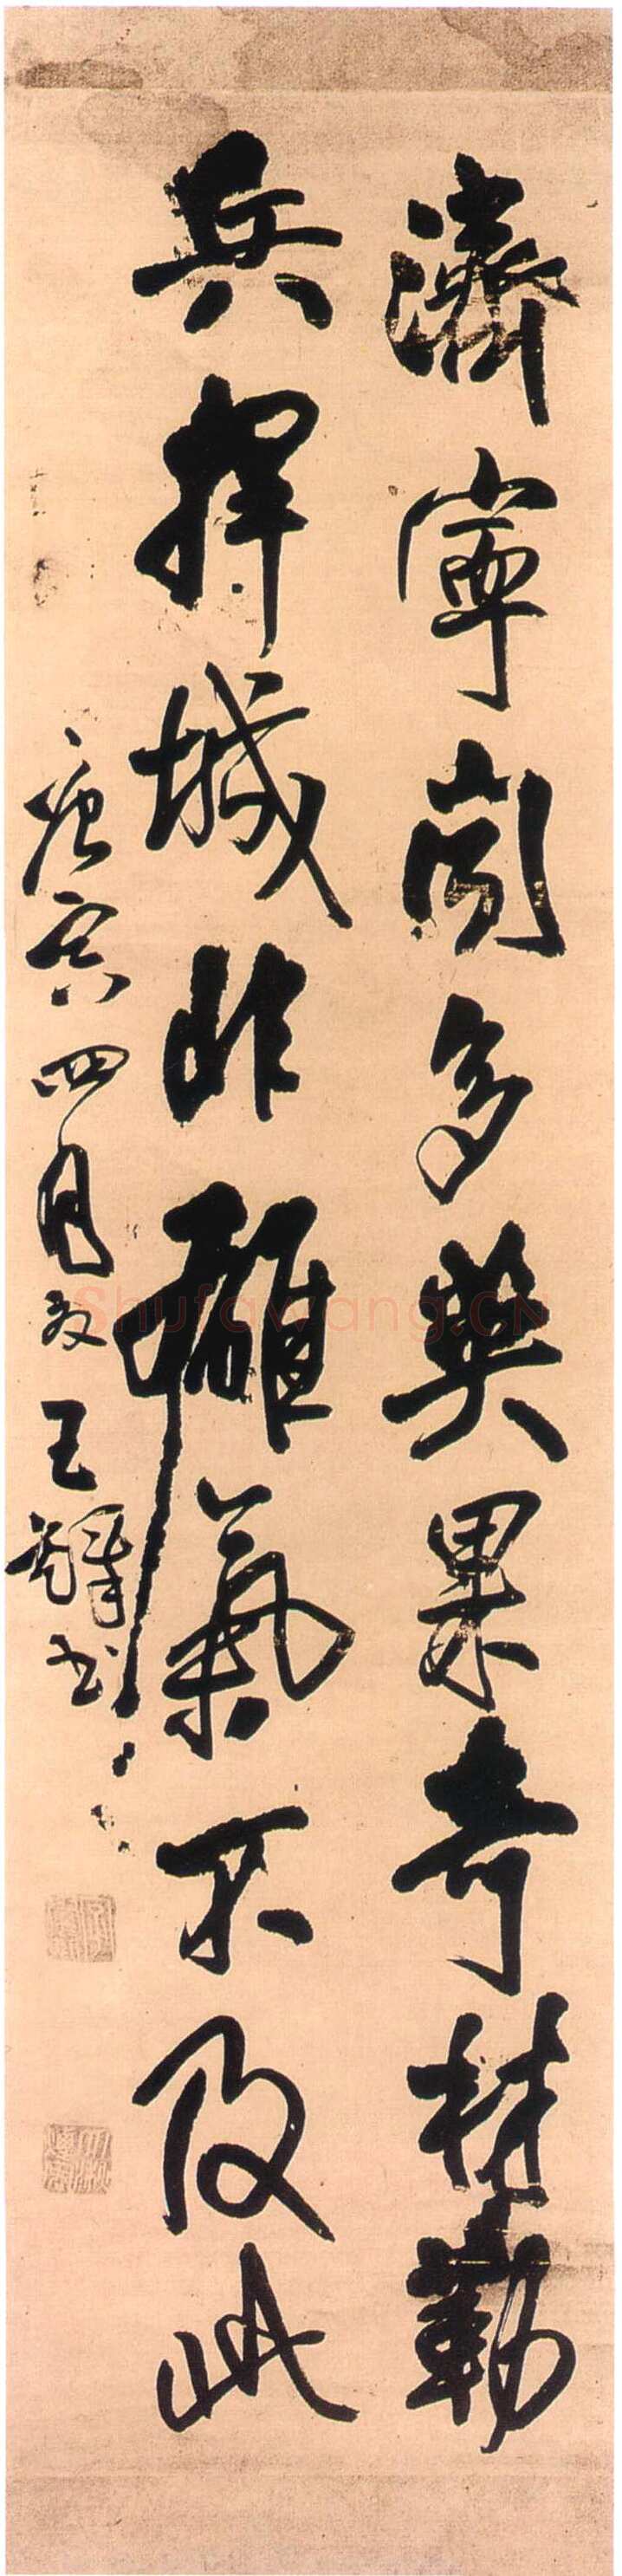 濟寧間多英果奇材勒
兵捍城非雄氣不及此
庚寅四月 王鐸書
Shufawang.CN